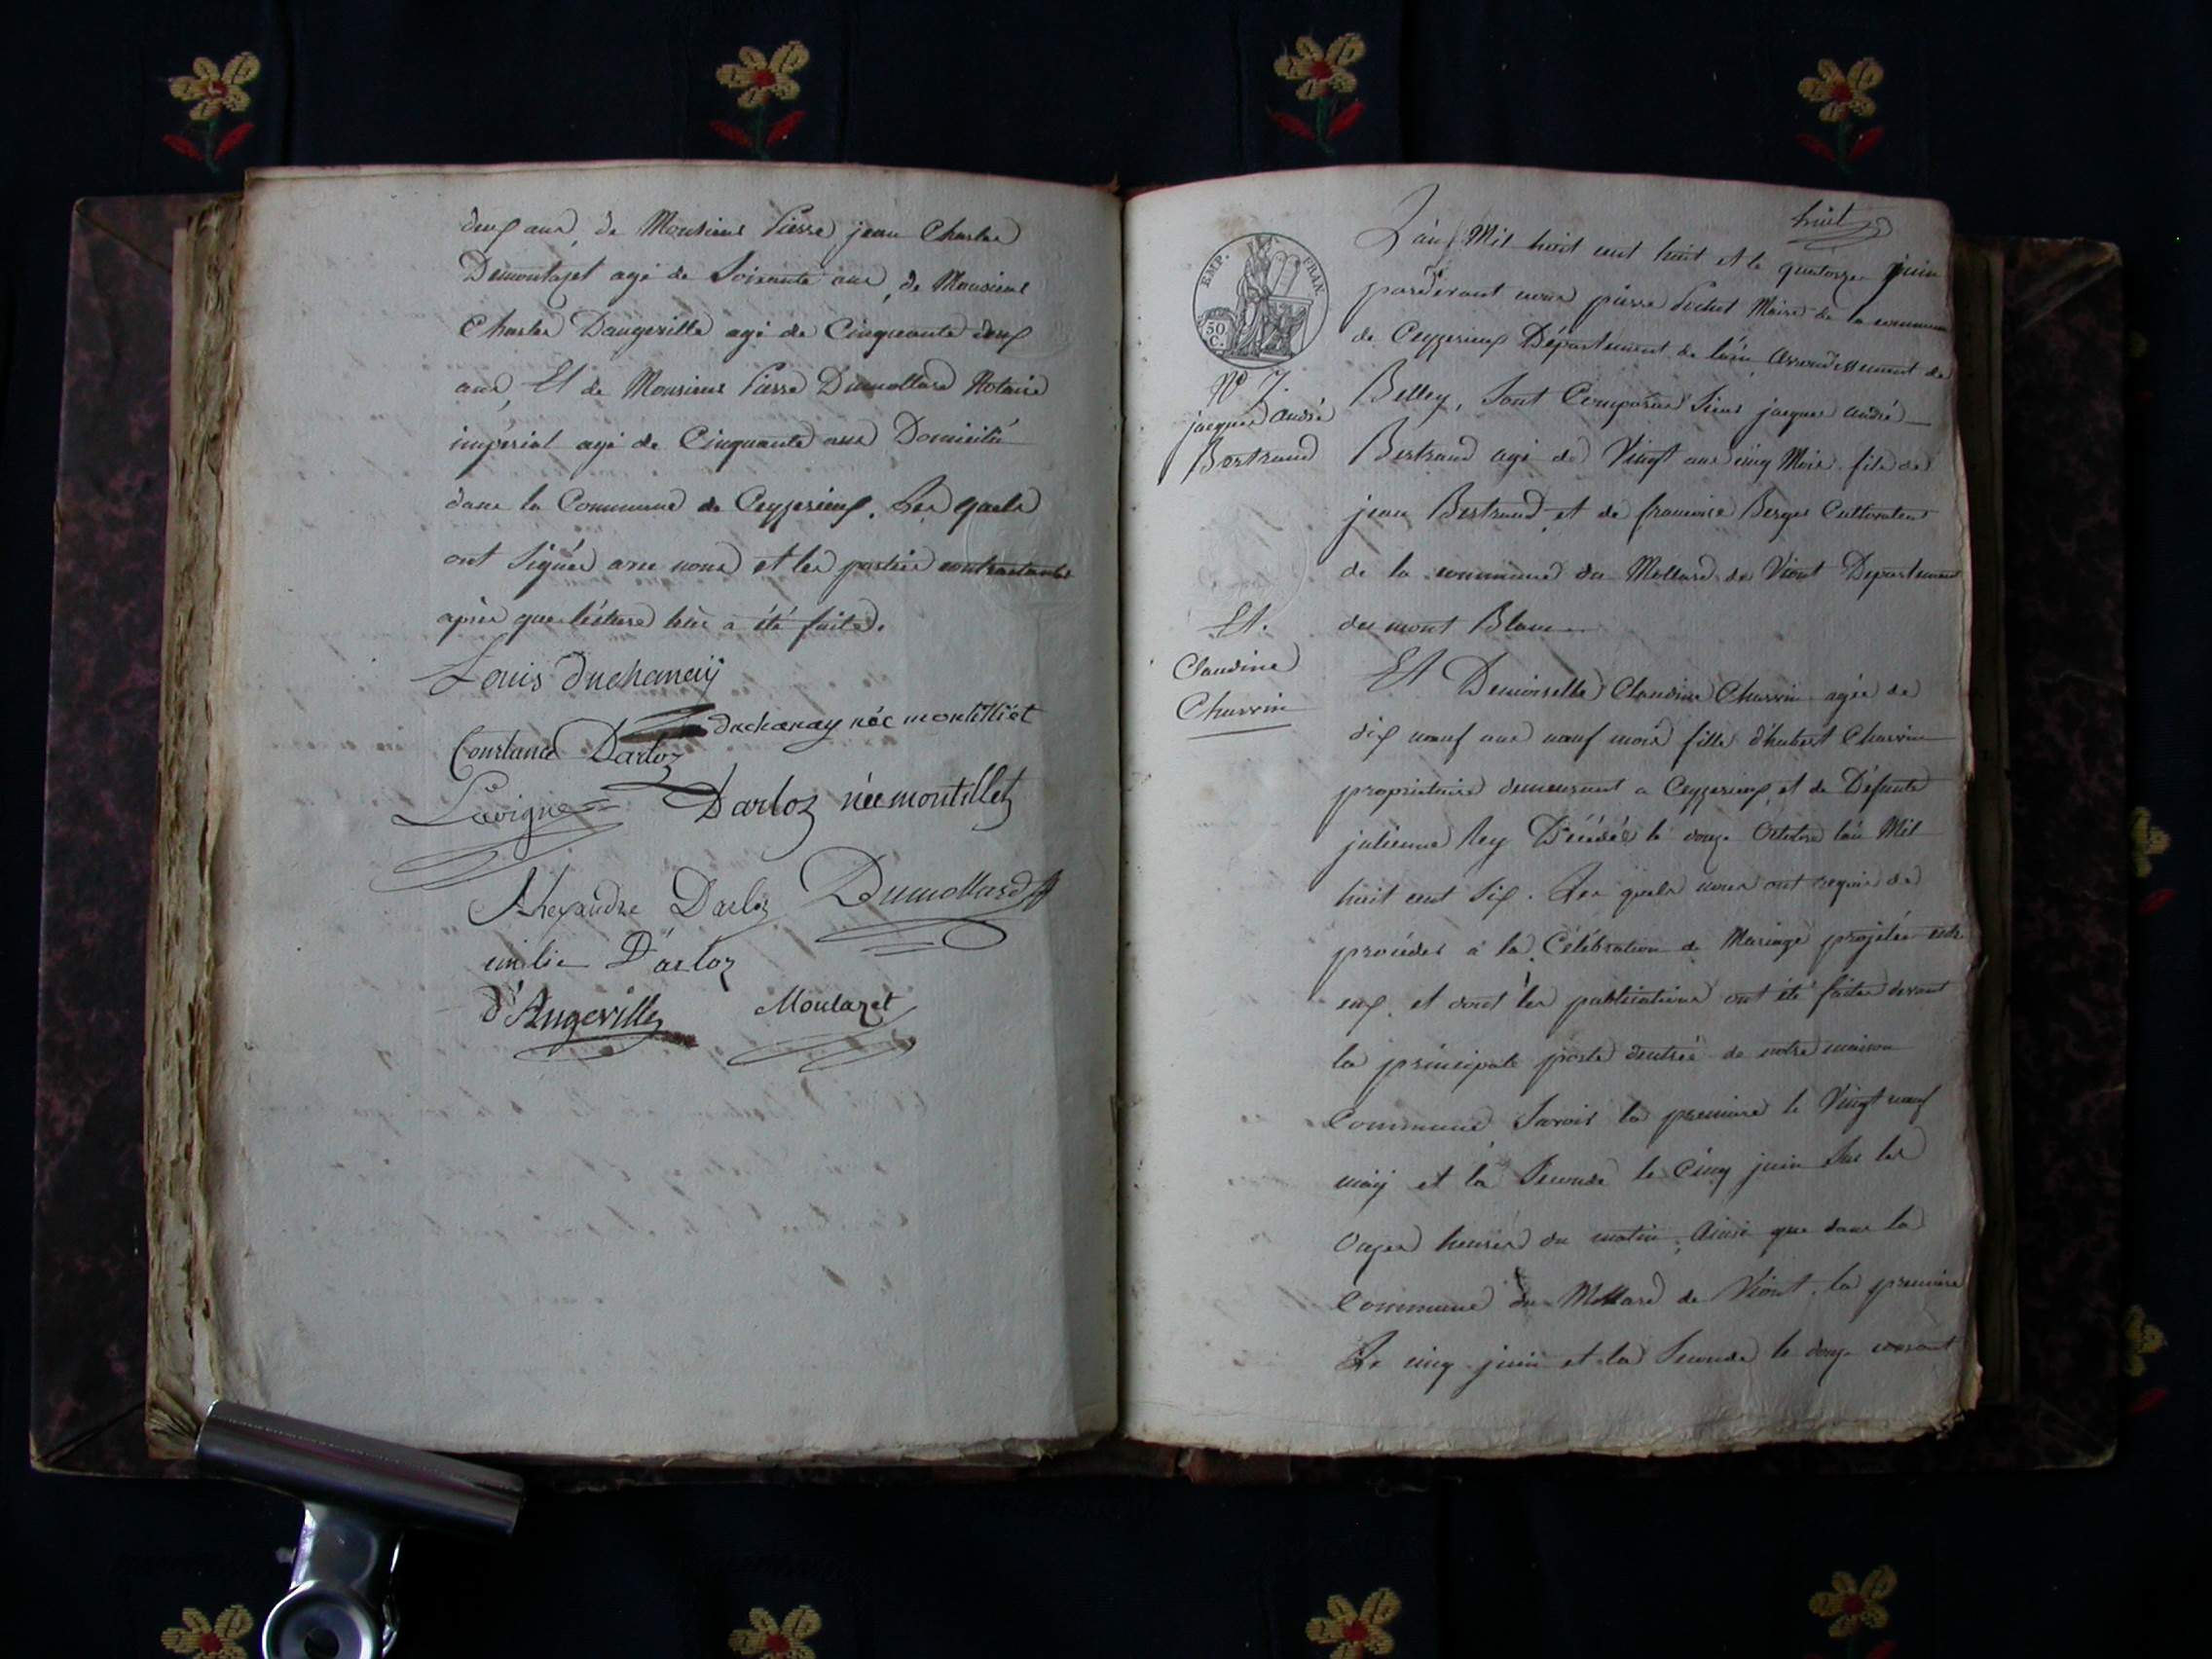 deux ans, de Monsieur Pierre jean Charles
Demontazet agé de Soixante ans, de Monsieur
Charles Dangeville agé de Cinquante deux
ans, Et de Monsieur Pierre Dumollard Notaire
impérial agé de Cinquante ans Domicilié
dans la Commune de Ceyzerieux. Les quels
ont Signés avec nous et les parties contractantes
après que lécture leur a été faite.
Louis Duchanay
Duchanay née montilliet
Constance Darloz
Lavigne
Darloz née montillet
Alexandre Darloz
Dumollard
emilie Darloz
d'Angeville
Montazet
huit
EMP. FRAN.
50 C.
N° 7.
jacques andré
Bertrand
Et.
Claudine
Charvin
L'an Mil huit cent huit et le quatorze juin
pardevant nous pierre Pochet Maire de la commune
de Ceyzerieux Département de l'ain, Arrondissement de
Belley, Sont Comparus Sieur jacques andré
Bertrand agé de Vingt ans cinq Mois fils de
jean Bertrand et de francoise Berger Cultivateur
de la commune du Mollard de Viont Departement
du mont Blanc
Et Demoiselle Claudine Charvin agée de
dix neuf ans neuf mois fille d'hubert Charvin
proprietaire demeurant a Ceyzerieux, et de Défunte
julienne Rey Décédée le douze Octobre l'an Mil
huit cent Six. Les quels nous ont requis de
procéder à la Célébration de Mariage projetée entre
eux, et dont les publications ont été faites devant
la principale porte d'entrée de notre maison
Commune, Savoir la premiere le Vingt neuf
may et la Seconde le Cinq juin Sur les
Onzes heures du matin, Ainsi que dans la
Commune du Mollard de Viont, la premiere
Le cinq juin et la Seconde le douze courant